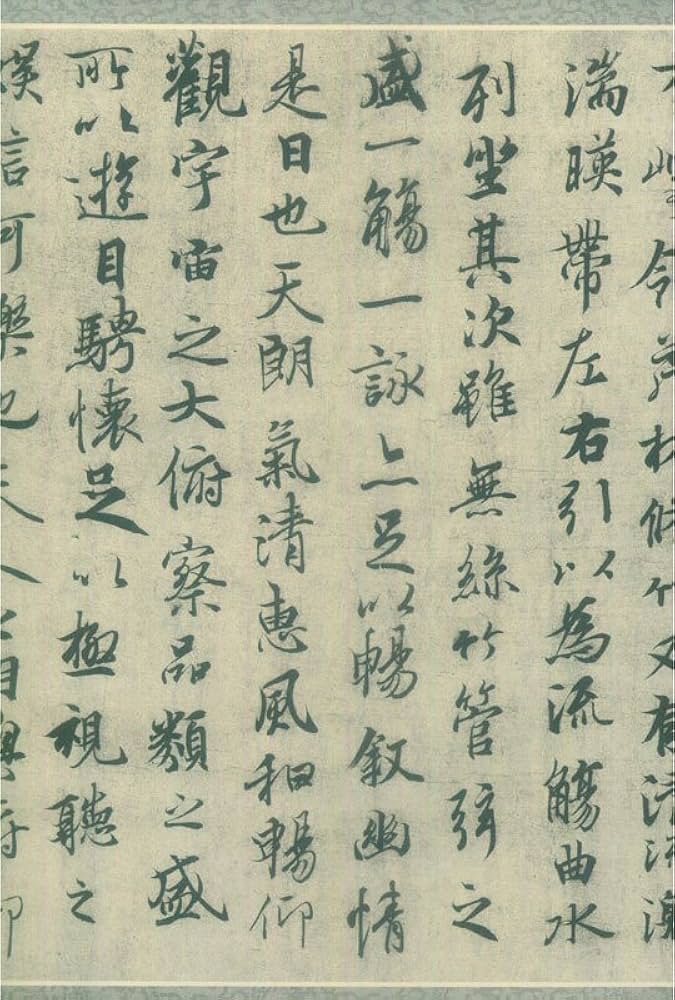 峻領茂林脩竹又有清流激
湍暎帶左右引以為流觴曲水
列坐其次雖無絲竹管弦之
盛一觴一詠亦足以暢叙幽情
是日也天朗氣清惠風和暢仰
觀宇宙之大俯察品類之盛
所以遊目騁懷足以極視聽之
娛信可樂也夫人之相與俯仰